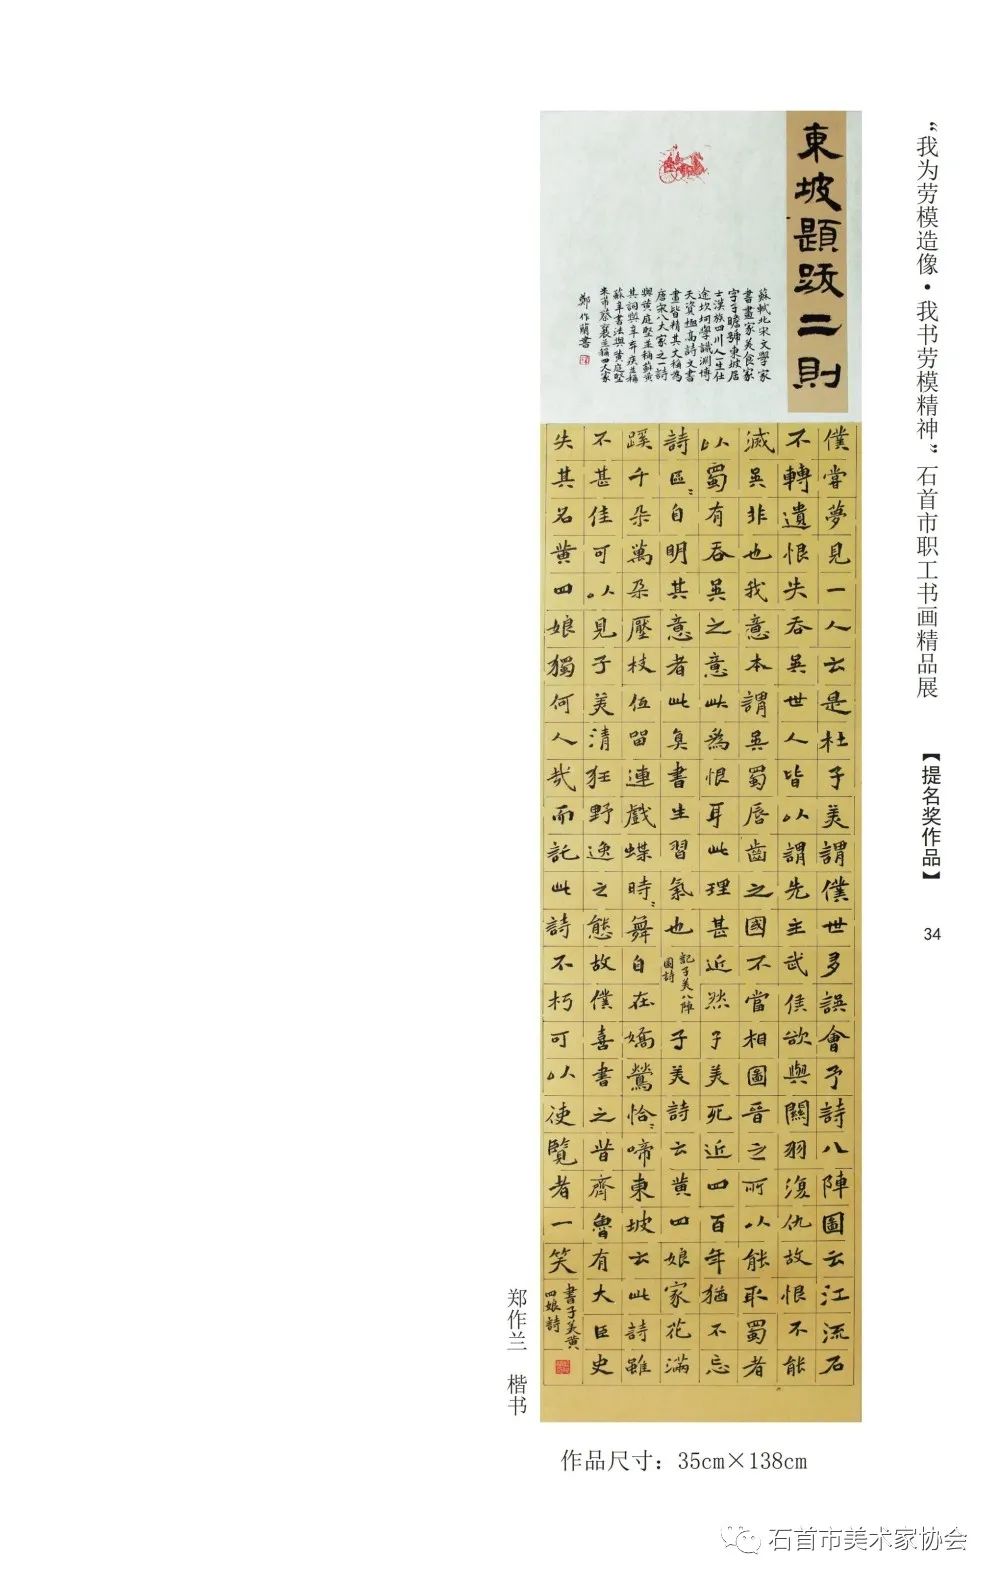 “我为劳模造像·我书劳模精神”石首市职工书画精品展
【提名奖作品】
34
東坡題跋二則
蘇軾北宋文學家
書畫家美食家
字子瞻號東坡居
士漢族四川人一生仕
途坎坷學識淵博
天資極高詩文書
畫皆精其文稱為
唐宋八大家之一詩
與黄庭堅並稱蘇黄
其詞與辛弃疾並稱
蘇辛書法與黄庭堅
米芾蔡襄並稱四大家
鄭作蘭書
僕嘗夢見一人云是杜子美謂僕世多誤會予詩八陣圖云江流石
不轉遺恨失吞吴世人皆以謂先主武侯欲與關羽復仇故恨不能
滅吴非也我意本謂吴蜀唇齒之國不當相圖晋之所以能取蜀者
以蜀有吞吴之意此為恨耳此理甚近然子美死近四百年猶不忘
詩區〻自明其意者此真書生習氣也記子美八陣圖詩子美詩云黄四娘家花滿
蹊千朵萬朵壓枝低留連戲蝶時〻舞自在嬌鶯恰〻啼東坡云此詩雖
不甚佳可以見子美清狂野逸之態故僕喜書之昔齊魯有大臣史
失其名黄四娘獨何人哉而託此詩不朽可以使覽者一笑書子美黄四娘詩
郑作兰 楷书
作品尺寸：35cm×138cm
石首市美术家协会